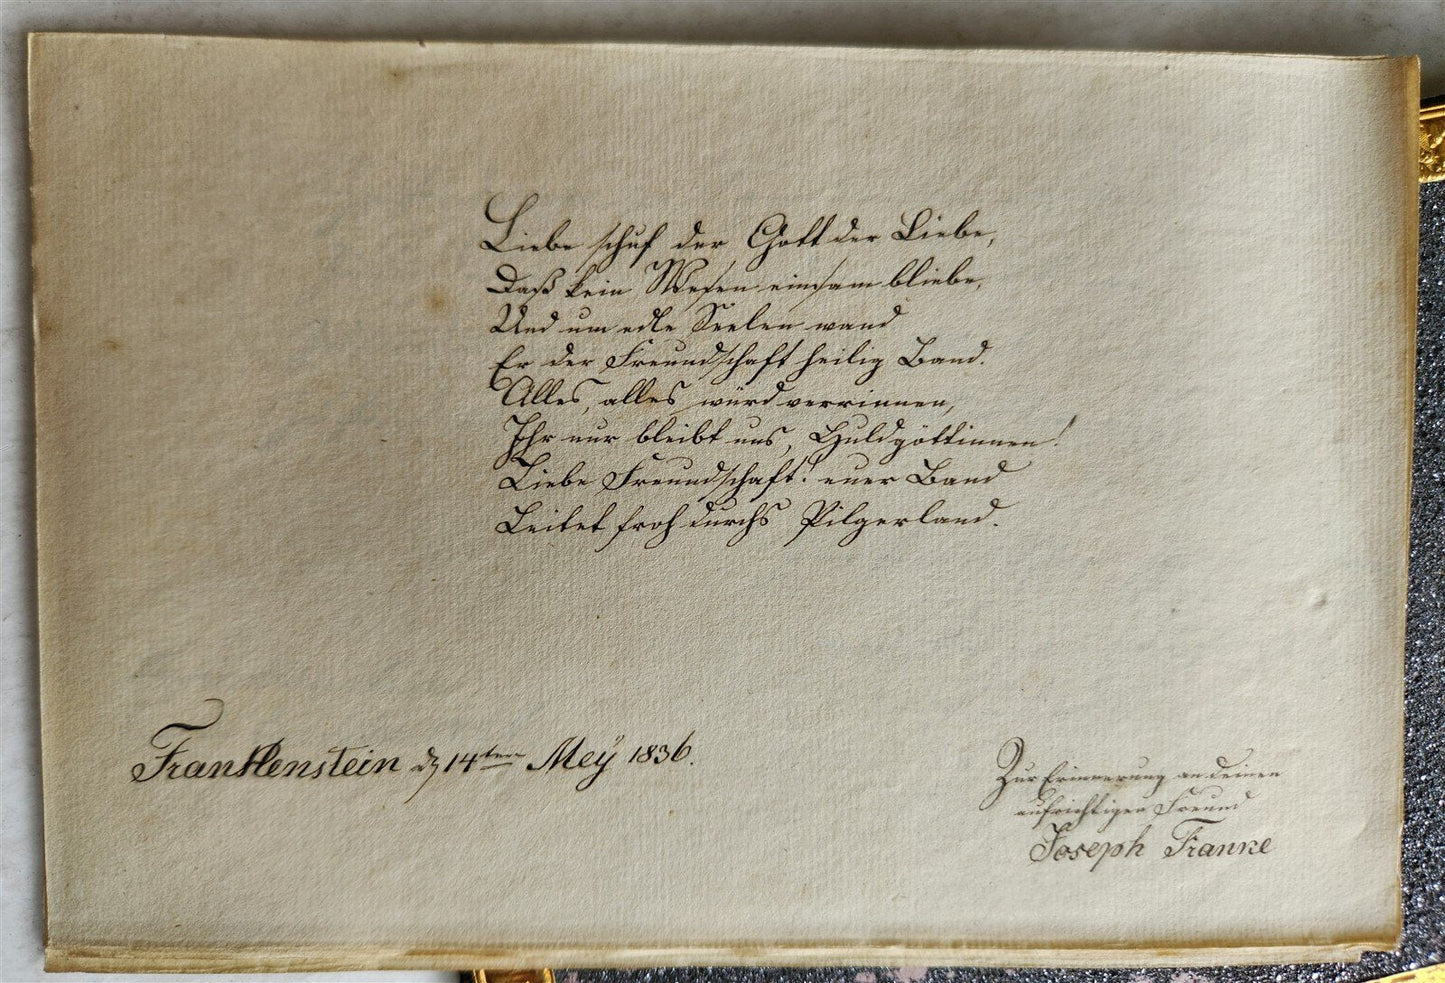 Liebe schuf der Gott der Liebe,
Daß kein Wesen einsam bliebe,
Und um edle Seelen wand
Er der Freundschaft heilig Band.
Alles, alles würd verrinnen,
Ihr nur bleibt uns, Huldgöttinnen!
Liebe Freundschaft! euer Band
Leitet froh durchs Pilgerland.
Frankenstein d 14ten Meÿ 1836.
Zur Erinnerung an deinen
aufrichtigen Freund
Joseph Franke